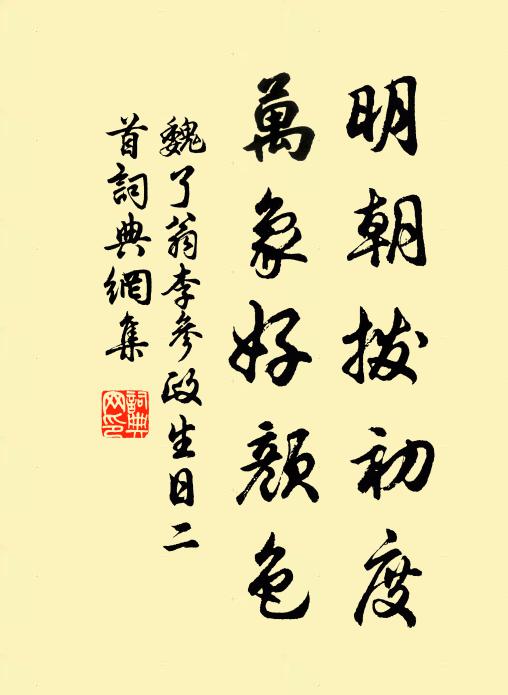 明朝拨初度
萬象好顏色
魏了翁李參政生日二
首詞典網集
詞典
网印